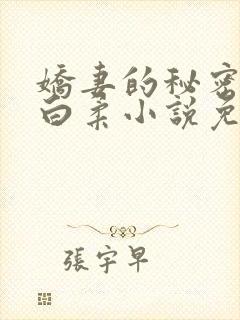 嬌妻的秘密
白柔小說免
張宇早